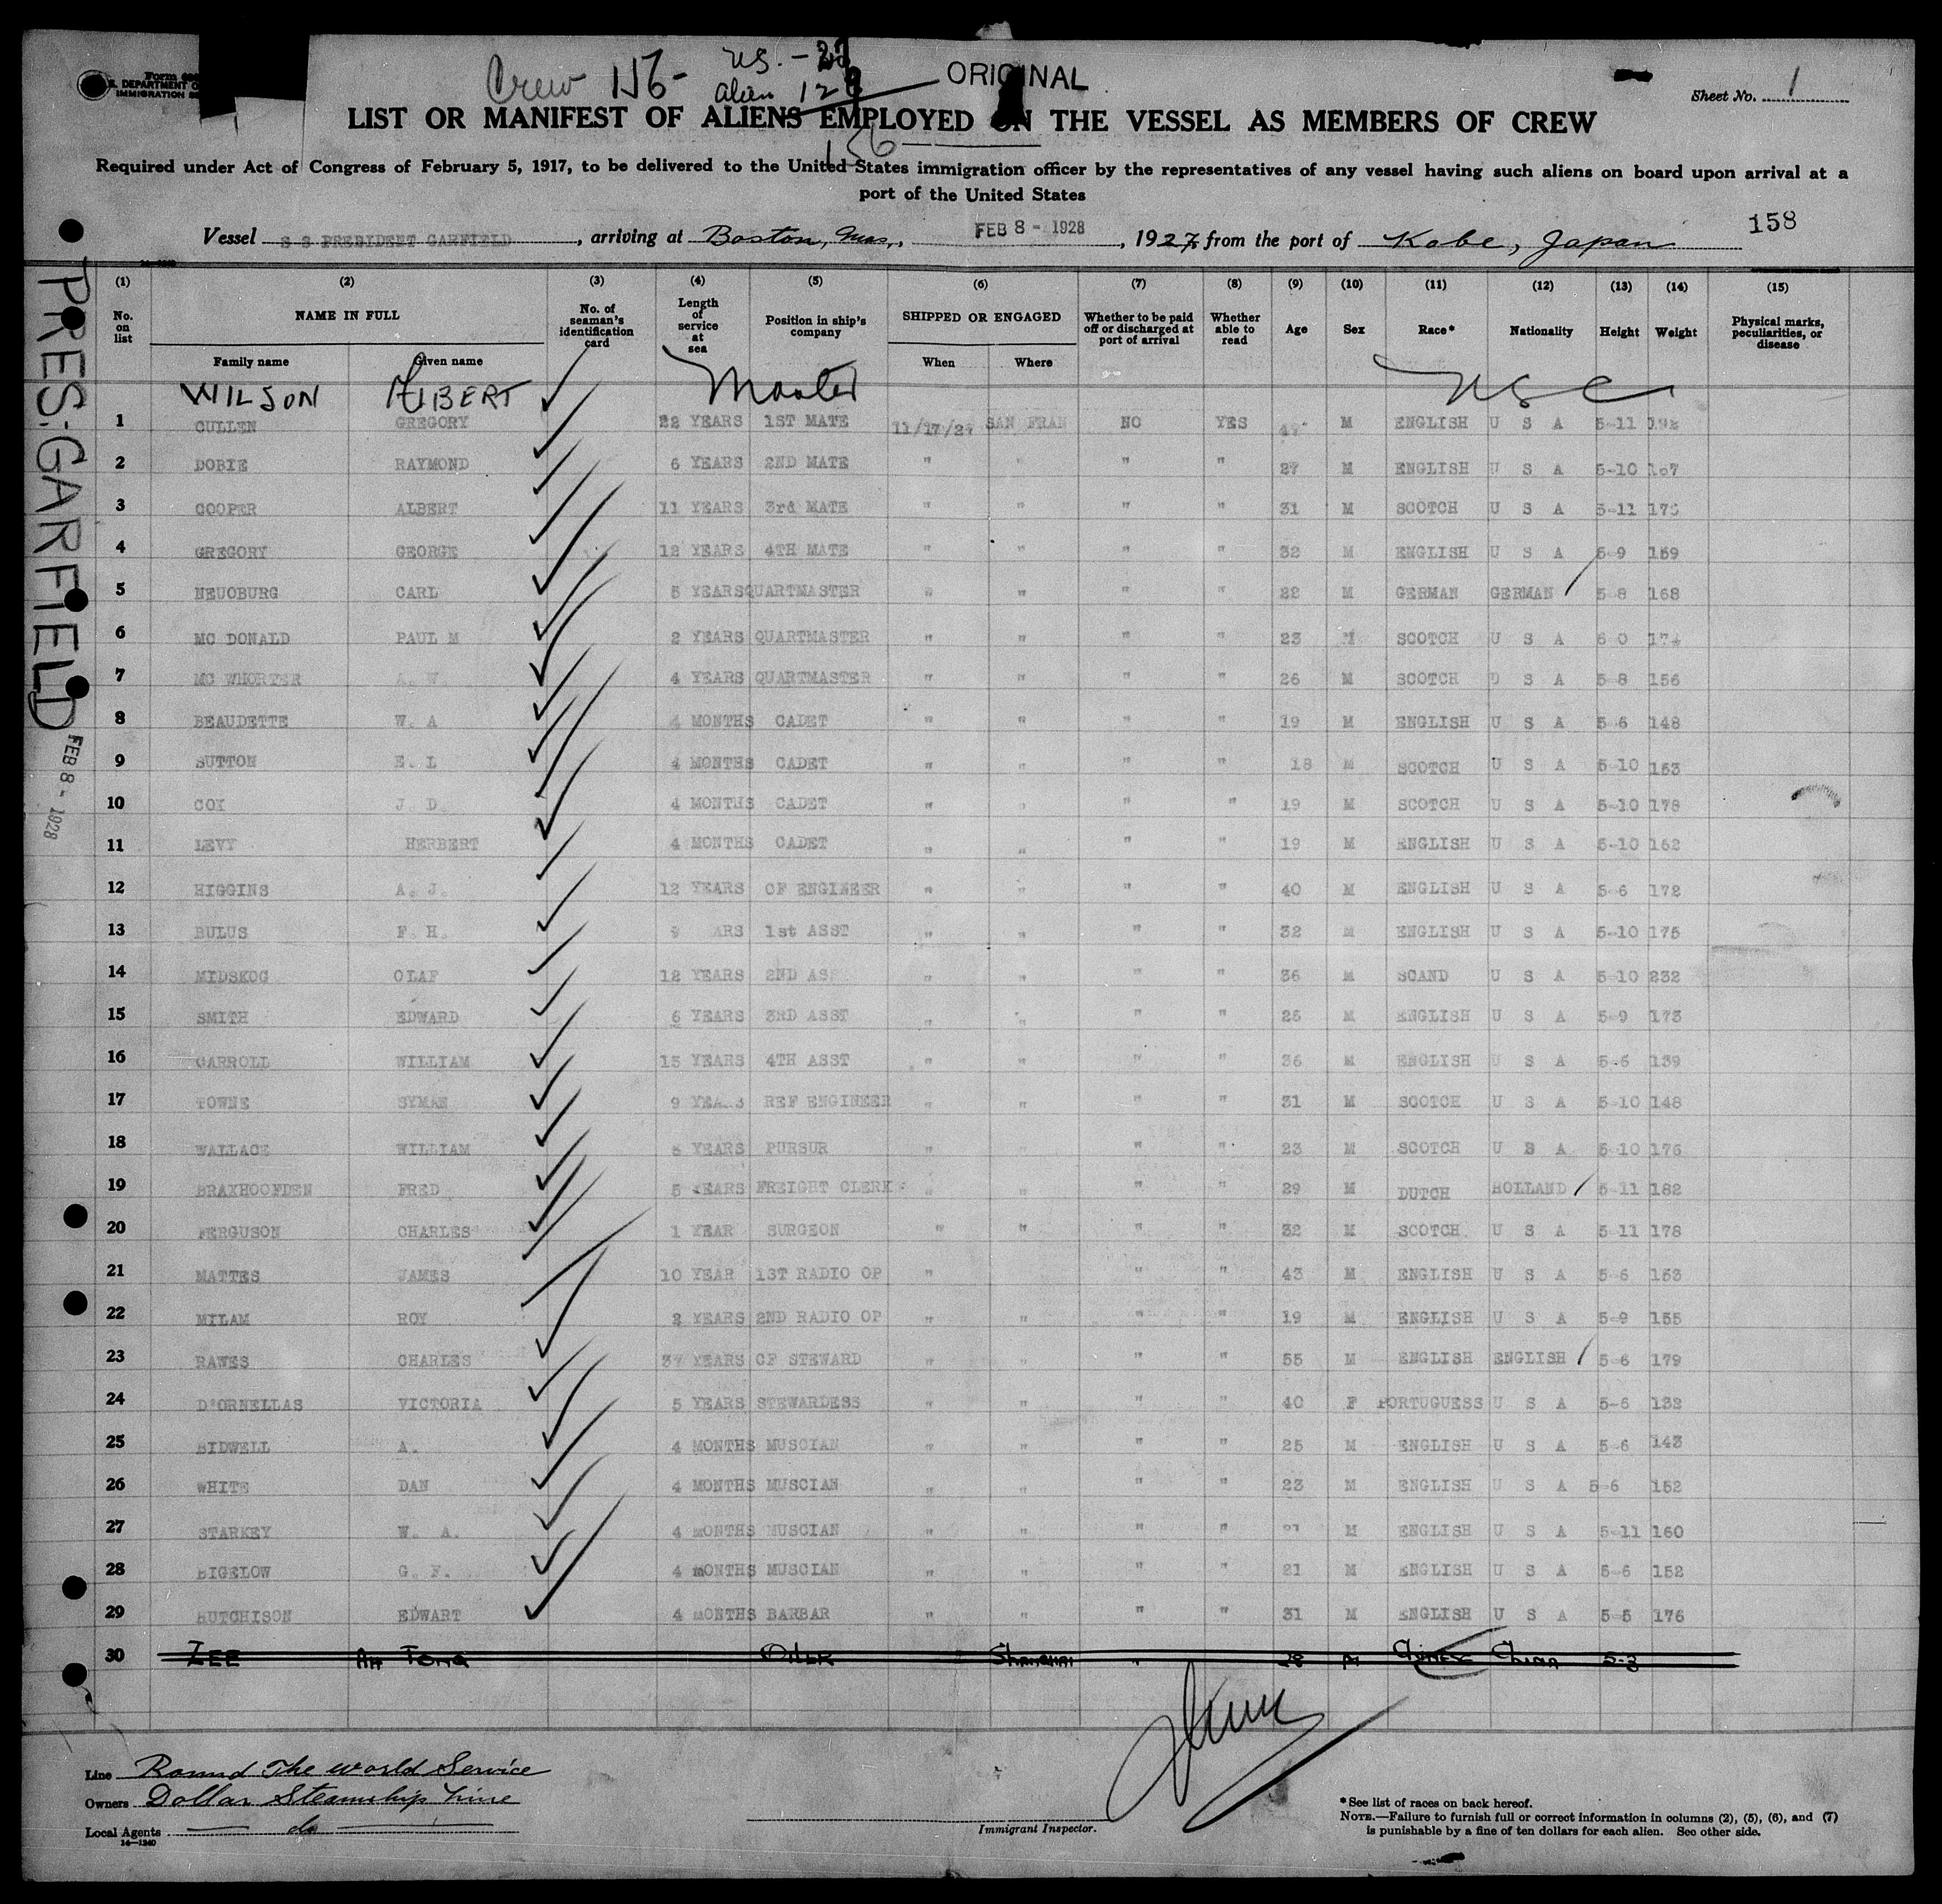 Crew 156- U.S. -
alien 128
156
ORIGINAL
Sheet No. 1
U.S. DEPARTMENT
IMMIGRATION
LIST OR MANIFEST OF ALIENS EMPLOYED ON THE VESSEL AS MEMBERS OF CREW
Required under Act of Congress of February 5, 1917, to be delivered to the United States immigration officer by the representatives of any vessel having such aliens on board upon arrival at a
port of the United States
158
Vessel S S PRESIDENT GARFIELD, arriving at Boston, Mas., FEB 8 - 1928, 1927, from the port of Kobe, Japan
PRES. GARFIELD
FEB 8 - 1928
(1) (2) (3) (4) (5) (6) (7) (8) (9) (10) (11) (12) (13) (14) (15)
No. on list NAME IN FULL No. of seaman's identification card Length of service at sea Position in ship's company SHIPPED OR ENGAGED Whether to be paid off or discharged at port of arrival Whether able to read Age Sex Race* Nationality Height Weight Physical marks, peculiarities, or disease
Family name Given name When Where
WILSON ALBERT Master USC
1 CULLEN GREGORY 22 YEARS 1ST MATE 11/17/27 SAN FRAN NO YES M ENGLISH U S A 5-11 192
2 DOBIE RAYMOND 6 YEARS 2ND MATE " " " " 27 M ENGLISH U S A 5-10 167
3 COOPER ALBERT 11 YEARS 3rd MATE " " " " 31 M SCOTCH U S A 5-11
4 GREGORY GEORGE 12 YEARS 4TH MATE " " " " 32 M ENGLISH U S A 5-9 159
5 NEUOBURG CARL 5 YEARS QUARTMASTER " " " " 22 M GERMAN GERMAN 5 8 168
6 MC DONALD PAUL M 2 YEARS QUARTMASTER " " " " 23 M SCOTCH U S A 6 0 174
7 MC WHORTER A. W. 4 YEARS QUARTMASTER " " " " 26 M SCOTCH U S A 5-8 156
8 BEAUDETTE W. A 4 MONTHS CADET " " " " 19 M ENGLISH U S A 5 6 148
9 SUTTON E. L 4 MONTHS CADET " " " " 18 M SCOTCH U S A 5-10 153
10 COX J. D. 4 MONTHS CADET " " " " 19 M SCOTCH U S A 5-10 178
11 LEVY HERBERT 4 MONTHS CADET " " " " 19 M ENGLISH U S A 5-10 162
12 HIGGINS A. J. 12 YEARS CF ENGINEER " " " " 40 M ENGLISH U S A 5-6 172
13 BULUS F. H. 9 ARS 1st ASST " " " " 32 M ENGLISH U S A 5-10 175
14 MIDSKOG OLAF 12 YEARS 2ND AS " " " " 36 M SCAND U S A 5-10 232
15 SMITH EDWARD 6 YEARS 3RD ASST " " " " 25 M ENGLISH U S A 5-9 173
16 CARROLL WILLIAM 15 YEARS 4TH ASST " " " " 36 M ENGLISH U S A 5-6 139
17 TOWNE SYMAN 9 YEARS REF ENGINEER " " " " 31 M SCOTCH U S A 5-10 148
18 WALLACE WILLIAM 5 YEARS PURSUR " " " 23 M SCOTCH U S A 5-10 176
19 BRAXHOOFDEN FRED 5 YEARS FREIGHT CLERK " " " " 29 M DUTCH HOLLAND 5-11 182
20 FERGUSON CHARLES 1 YEAR SURGEON " " " " 32 M SCOTCH U S A 5-11 178
21 MATTES JAMES 10 YEAR 1ST RADIO OP " " " 43 M ENGLISH U S A 5-6 153
22 MILAM ROY 2 YEARS 2ND RADIO OP " " " " 19 M ENGLISH U S A 5-9 155
23 RAWES CHARLES 37 YEARS CF STEWARD " " " " 55 M ENGLISH ENGLISH 5-6 179
24 D'ORNELLAS VICTORIA 5 YEARS STEWARDESS " " " " 40 F PORTUGUESS U S A 5-6 132
25 BIDWELL A. 4 MONTHS MUSCIAN " " " " 25 M ENGLISH U S A 5-6 143
26 WHITE DAN 4 MONTHS MUSCIAN " " " " 23 M ENGLISH U S A 5-6 152
27 STARKEY W. A. 4 MONTHS MUSCIAN " " " " M ENGLISH U S A 5-11 160
28 BIGELOW G. F. 4 MONTHS MUSCIAN " " " " 21 M ENGLISH U S A 5-6 152
29 HUTCHISON EDWART 4 MONTHS BARBAR " " " " 31 M ENGLISH U S A 5-5 176
30 ZEE AH TONG OILER SHANGHAI " 28 M CHINESE CHINA 5-3
Line Round The World Service
Owners Dollar Steamship Line
Local Agents do
14-1240
Immigrant Inspector.
*See list of races on back hereof.
NOTE.—Failure to furnish full or correct information in columns (2), (5), (6), and (7)
is punishable by a fine of ten dollars for each alien. See other side.